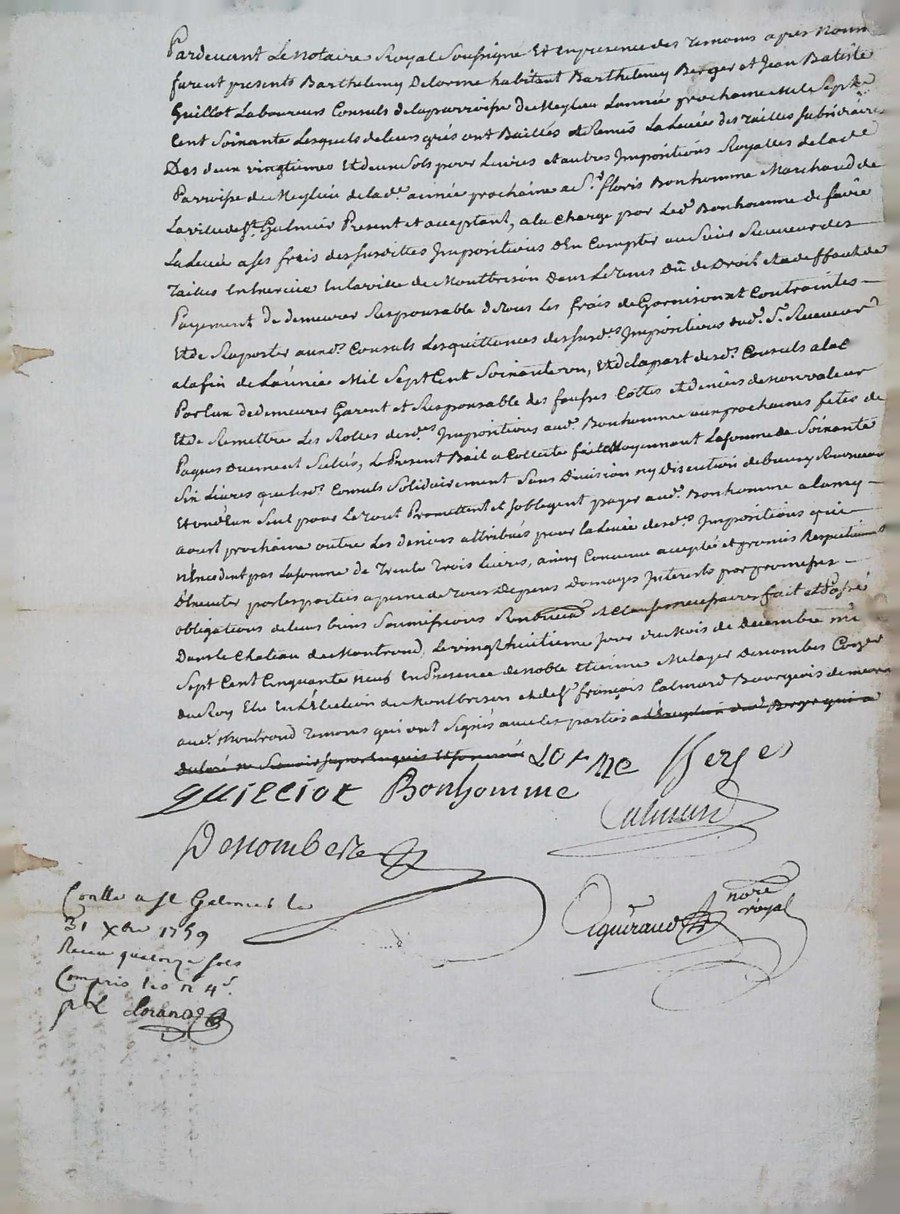 Pardevant Le Notaire Royal Soussigné Et en presence des Temoins apres Nommés
furent presents Barthelemy Delorme habitant Barthelemy Berger et Jean Batiste
Guillot Laboureurs Consuls de la parroisse de Meylieu L'année prochaine Mil Sept
Cent Soixante Lesquels de leurs grés ont Baillés et Remis La Levée des Tailles
Des deux vingtiemes Et deux Sols pour Livres et autres Impositions Royalles de lade
Parroisse de Meylieu de lade année prochaine a Sr floris Bonhomme Marchand de
La ville de St Galmier Present et acceptant, a la Charge par Led Bonhomme de faire
La Levée a ses frais des susdittes Impositions d'En Compter au Sieur Receveur des
Tailles En Exercice En la ville de Montbrison Dans Le Tems Dû de Droit et a deffaut de
Payement de demeurer Responsable de Tous Les frais de Garnison et Contraintes
Et de Raporter auxds Consuls Les quittances des susds Impositions dud Sr Receveur
a la fin de L'année Mil Sept Cent Soixante un, Et de la part desds Consuls
Par Eux de demeurer Garent et Responsable des fausses Cottes et deniers de non valeur
Et de Remettre Les Rolles desds Impositions aud Bonhomme aux prochaines fetes de
Paques Duement Scélés, Le Present Bail a Collecte fait Moyennant La somme de Soixante
Six Livres que Lesds Consuls Solidairement Sans Division ny discution
Et un d'Eux Seul pour Le Tout Promettent et s'obligent payer aud Bonhomme a la my
aoust prochaine outre Les deniers attribués pour la Levée desds Impositions qui
n'Excedent pas La somme de Trente Trois Livres, ainsy Convenu accepté et promis
d'Executer par Les parties a peine de Tous Depens Domages Interests par promesses
obligations de leurs biens Soumissions et Clauses necessaires fait et Passé
Dans le Chateau de Montrond, Le vingt huitieme jour du Mois de Decembre mil
Sept Cent Cinquante neuf En Presence de noble Etienne Denombes
du Roy En L'Election de Montbrison et de Sr françois Calmard Bourgeois demeurant
aud Montrond Temoins qui ont Signés avec les parties a l'exception dud Berger qui a
declaré ne Scavoir Signer Enquis Et sommé
Berger
guilliot Bonhomme
Calmard
Denombe
Aguiraud nore royal
Conllé a St Galmier le
31 Xbre 1759
Receu quatorze sols
Compris les 4s